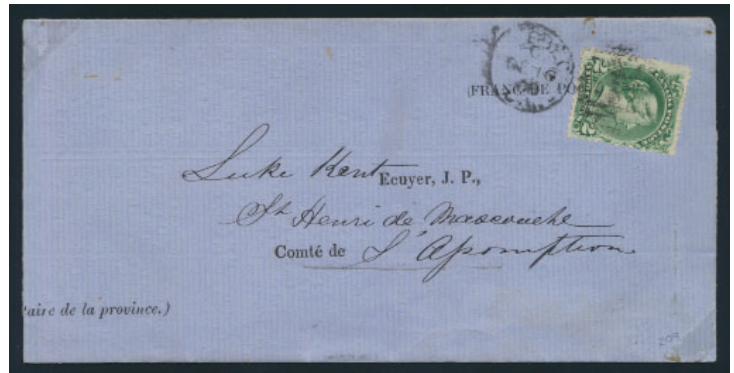 (FRANC DE PO
Luke Kent Ecuyer, J. P.,
St Henri de Mascouche
Comté de L'Assomption
taire de la province.)
209